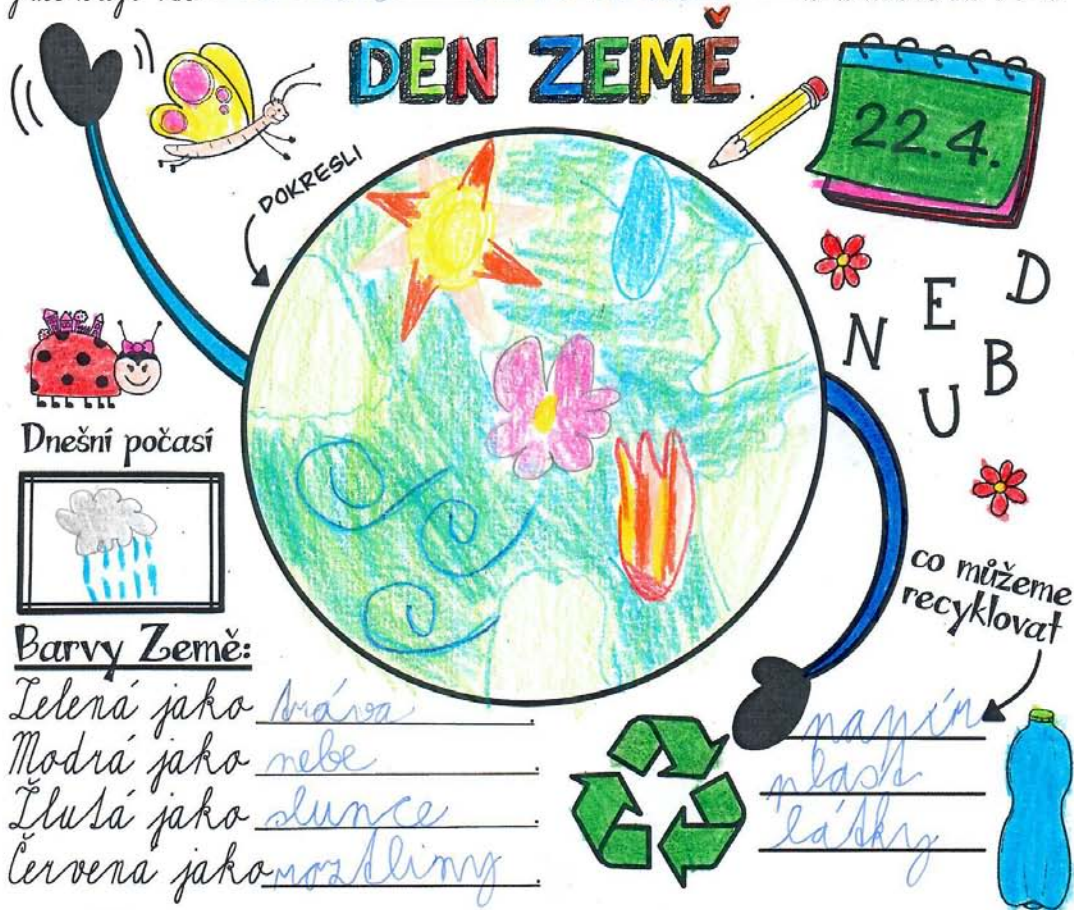 DEN ZEMĚ.
22.4.
DOKRESLI
N E D
U B
Dnešní počasí
co můžeme
recyklovat
Barvy Země:
Zelená jako tráva.
Modrá jako nebe.
Žlutá jako slunce.
Červená jako roztliny.
papír
plast
látky